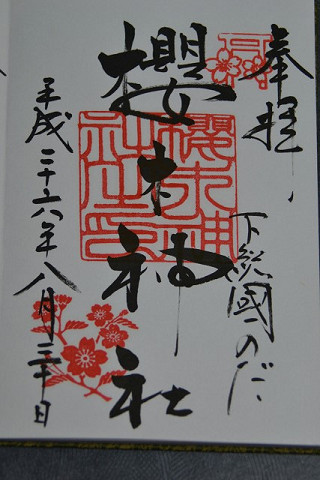 奉拝
下総國のだ
櫻木神社
櫻木神社之印
平成二十六年八月三十日